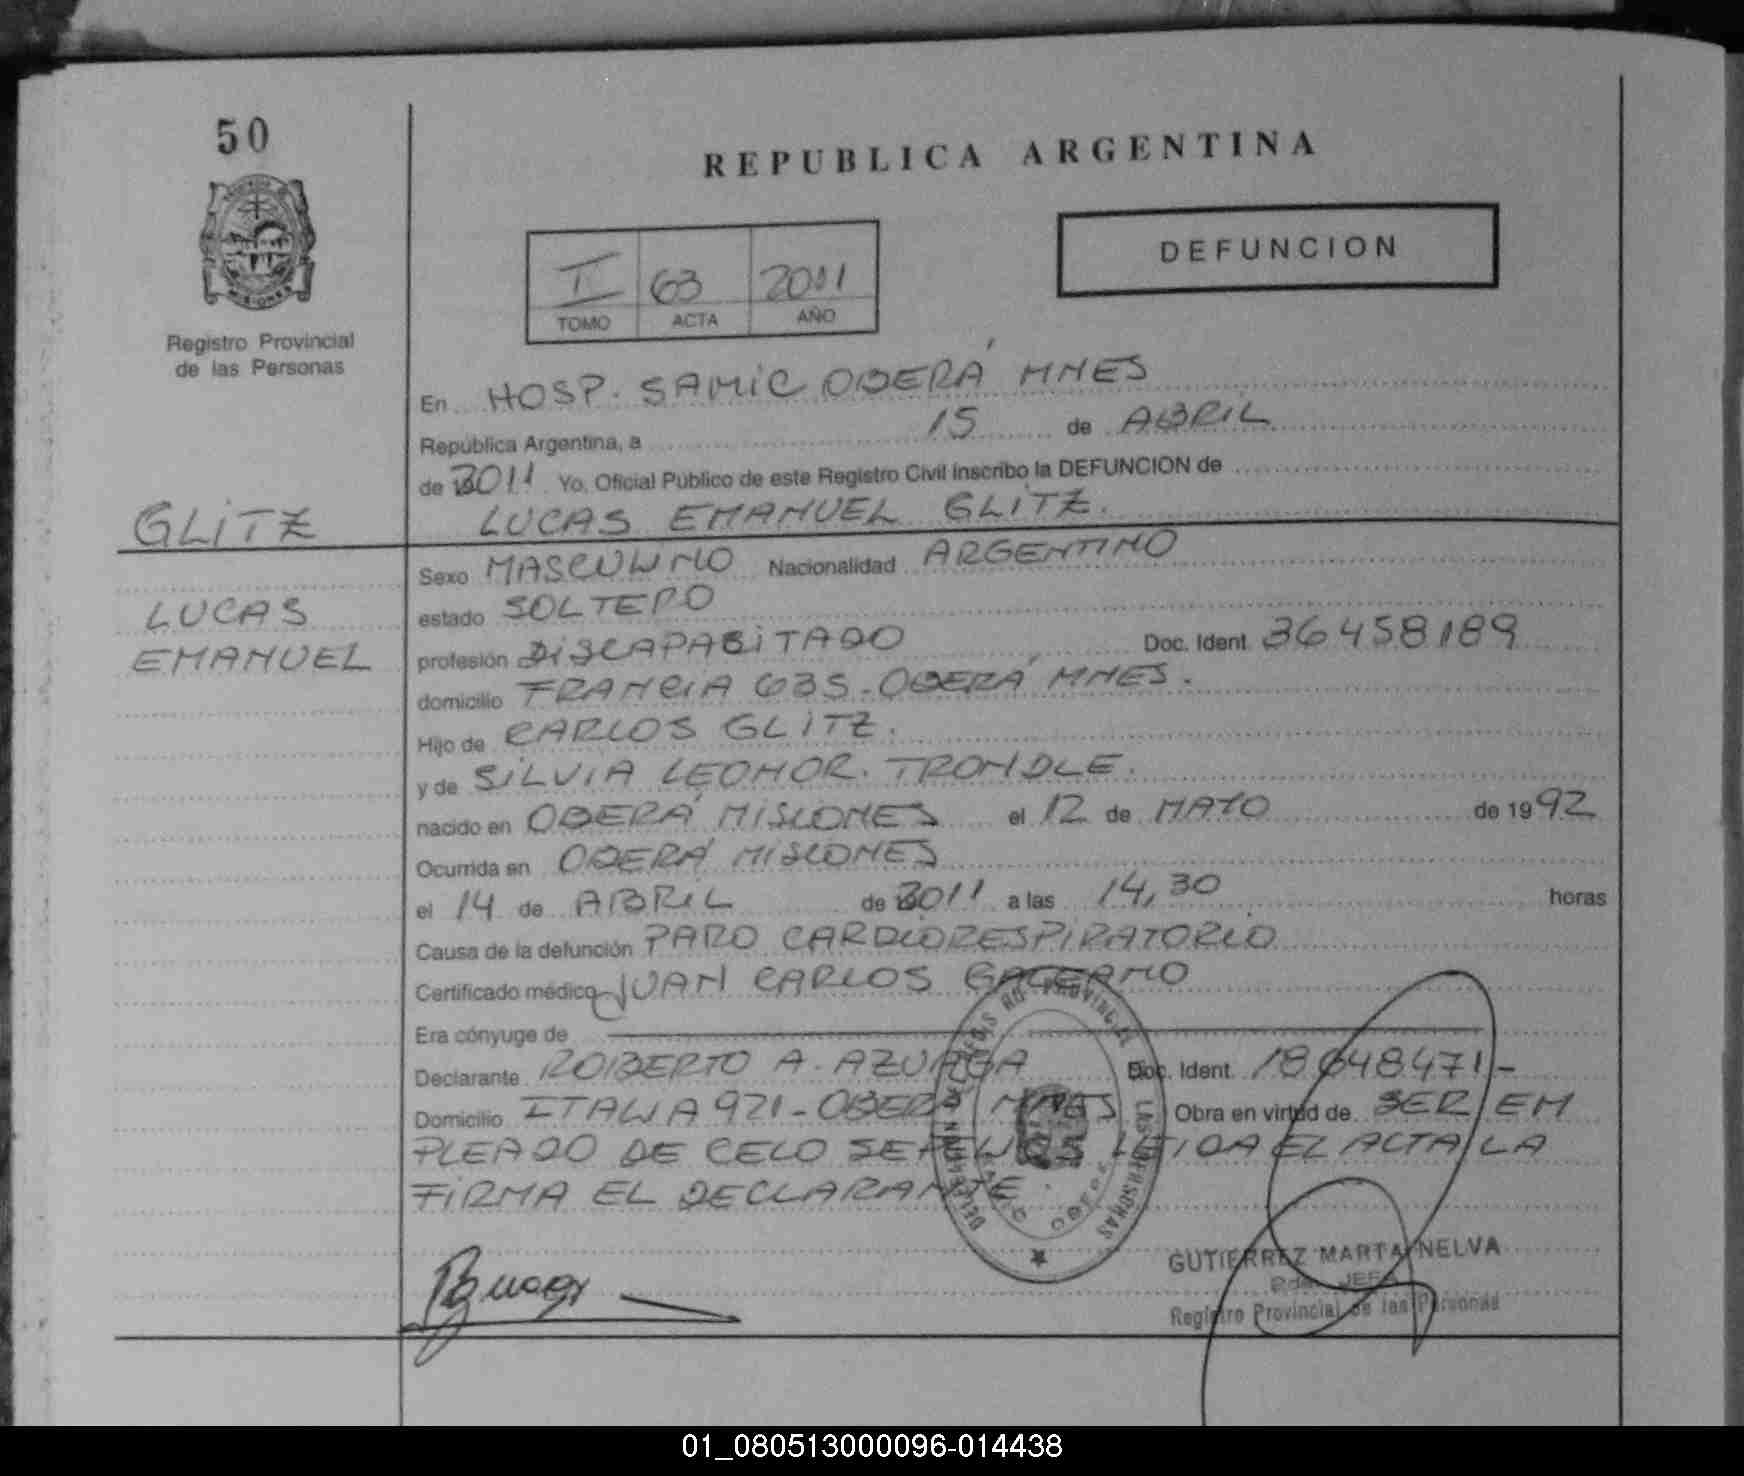 50
REPUBLICA ARGENTINA
DEFUNCION
II 63 2011
TOMO ACTA AÑO
MISIONES
Registro Provincial
de las Personas
En HOSP. SAMIC OBERÁ MNES
República Argentina, a 15 de ABRIL
de 2011 Yo, Oficial Público de este Registro Civil inscribo la DEFUNCION de
GLITZ
LUCAS EMANUEL GLITZ.
LUCAS
EMANUEL
Sexo MASCULINO Nacionalidad ARGENTINO
estado SOLTERO
profesión DISCAPABITADO Doc. Ident. 36458189
domicilio FRANCIA 635-OBERÁ MNES.
Hijo de CARLOS GLITZ.
y de SILVIA LEONOR. TRONDLE.
nacido en OBERÁ MISIONES el 12 de MAYO de 1992
Ocurrida en OBERÁ MISIONES
el 14 de ABRIL de 2011 a las 14,30 horas
Causa de la defunción PARO CARDIORESPIRATORIO
Certificado médico JUAN CARLOS GALEANO
Era cónyuge de
Declarante ROBERTO A. AZUAGA Doc. Ident. 18648471-
Domicilio ITALIA 921-OBERÁ MNES Obra en virtud de SER EM
PLEADO DE CELO SEPELIOS LEIDA EL ALTA LA
FIRMA EL DECLARANTE.
PROVINCIAL
LAS PERSONAS
GUTIERREZ MARTA NELVA
JEFA
Registro Provincial de las Personas
01_080513000096-014438